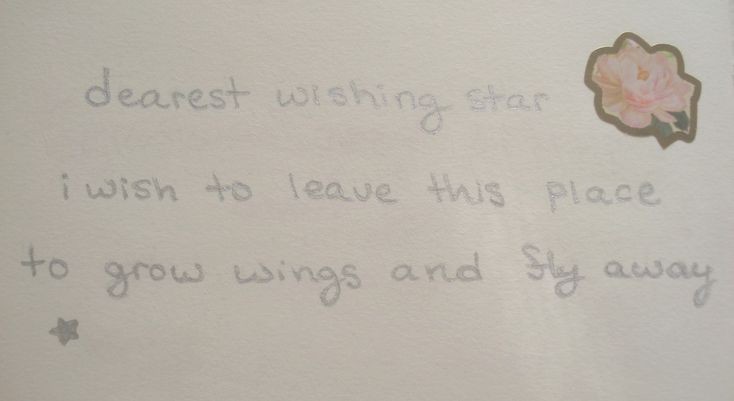 dearest wishing star
i wish to leave this place
to grow wings and fly away